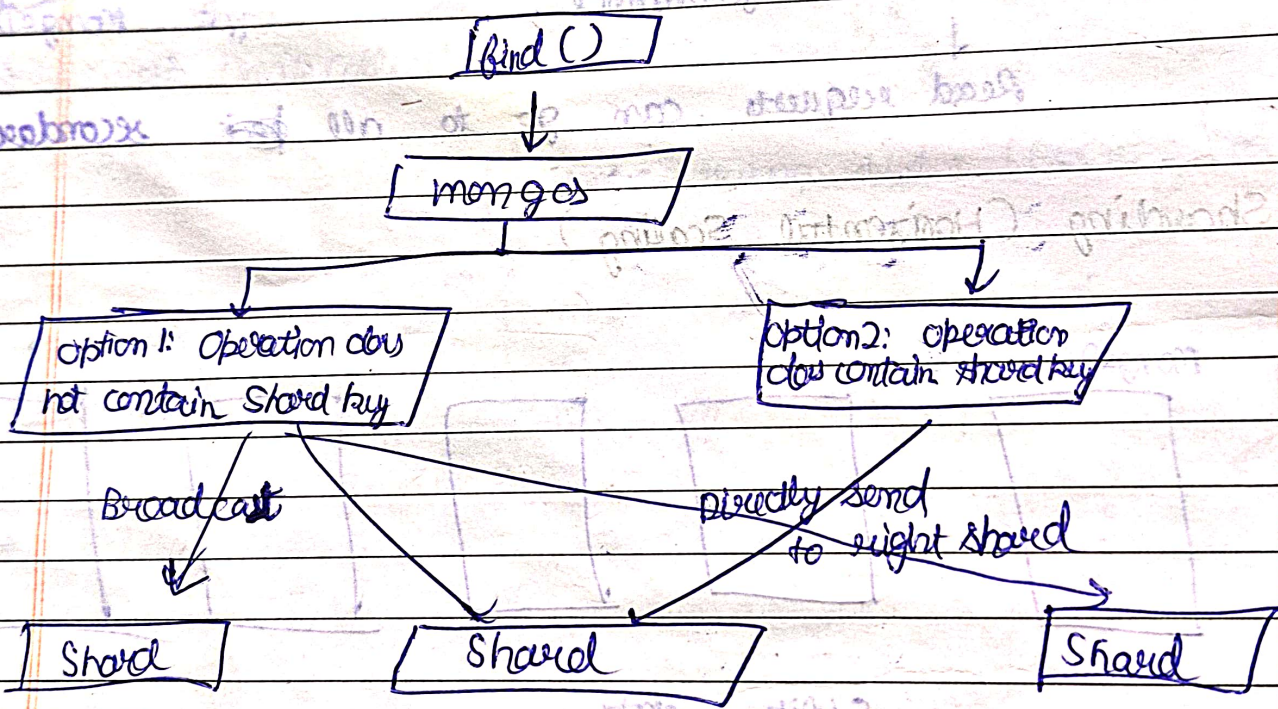 find()
mongos
option 1: Operation does
not contain Shard key
option 2: operation
does contain shard key
Broadcast
Directly send
to right shard
Shard
Shard
Shard